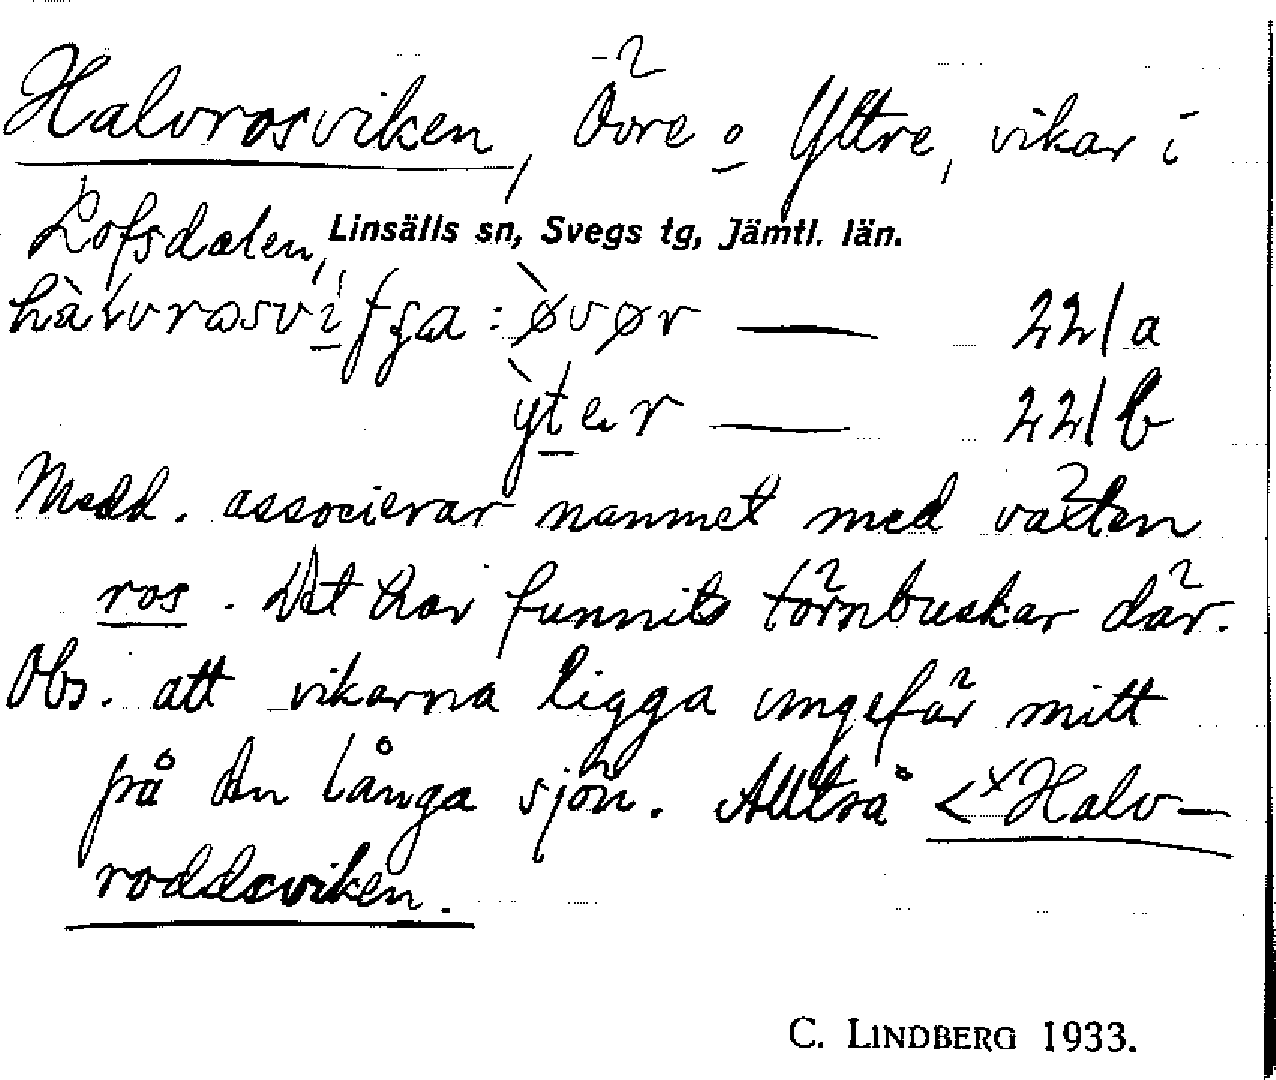 Halvrosviken, Övre o Yttre, vikar i
Lofsdalen, Linsälls sn, Svegs tg, Jämtl. län.
øvør — 22/a
ỳter — 22/b
Medd. associerar namnet med växten
ros. Det har funnits törnbuskar där.
Obs. att vikarna ligga ungefär mitt
på den långa sjön. Alltså < ˣHalv-
roddsviken.
C. LINDBERG 1933.